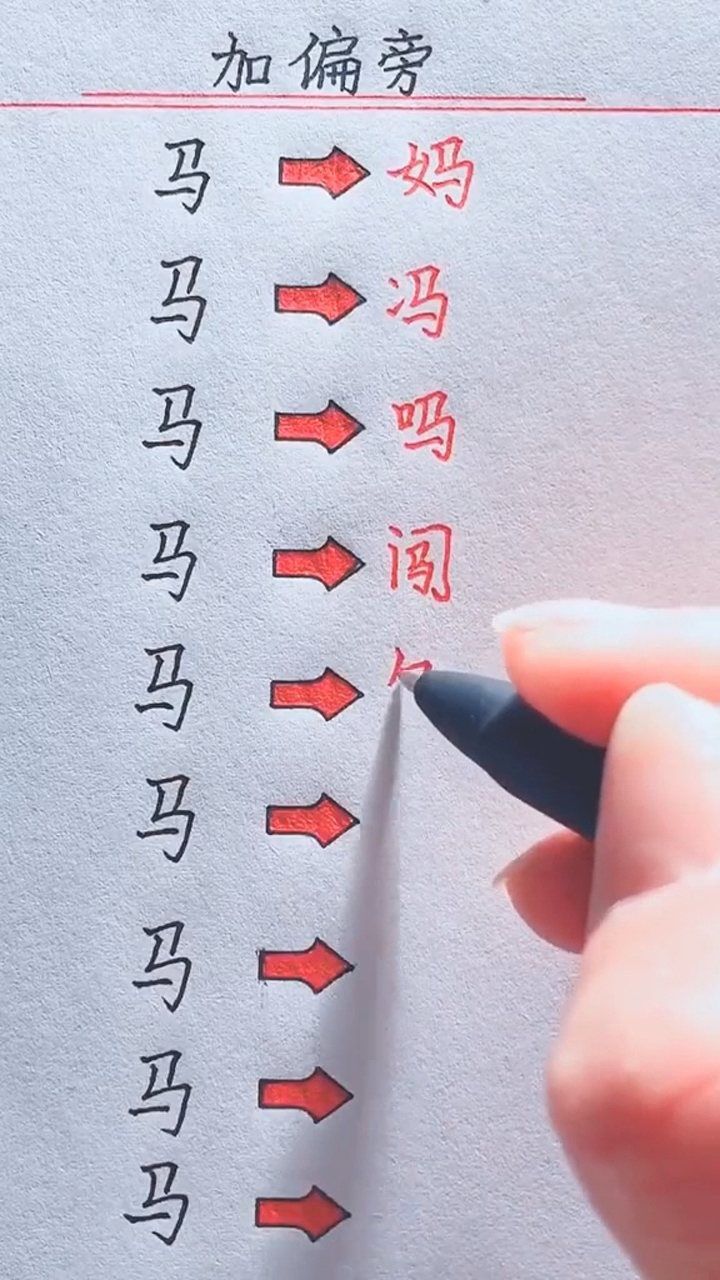 加偏旁
马 妈
马 冯
马 吗
马 闯
马
马
马
马
马